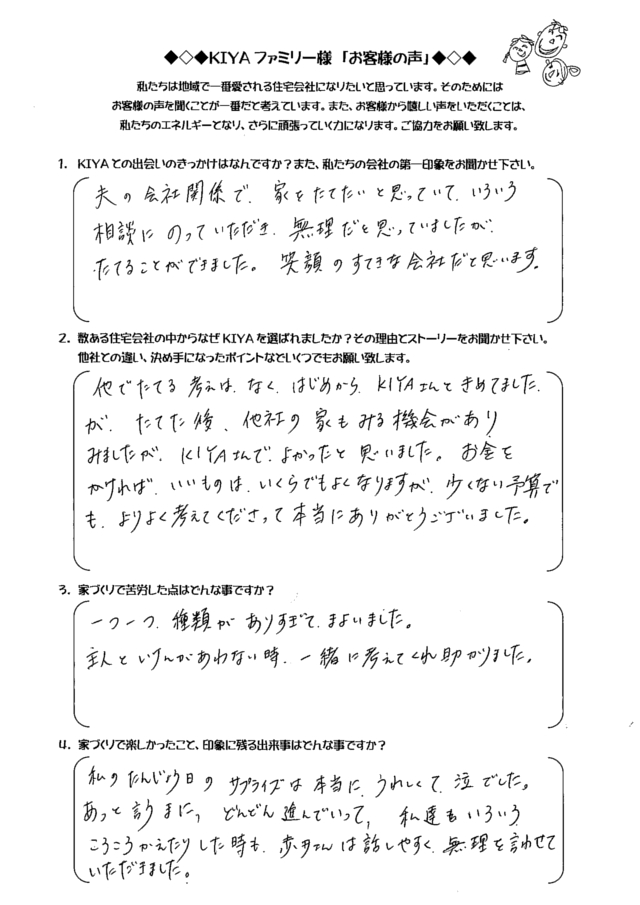 ◆◇◆KIYAファミリー様「お客様の声」◆◇◆
私たちは地域で一番愛される住宅会社になりたいと思っています。そのためには
お客様の声を聞くことが一番だと考えています。また、お客様から嬉しい声をいただくことは、
私たちのエネルギーとなり、さらに頑張っていく力になります。ご協力をお願い致します。
1. KIYAとの出会いのきっかけはなんですか?また、私たちの会社の第一印象をお聞かせ下さい。
夫の会社関係で、家をたてたいと思っていて、いろいろ
相談にのっていただき、無理だと思っていましたが、
たてることができました。笑顔のすてきな会社だと思います。
2. 数ある住宅会社の中からなぜKIYAを選ばれましたか?その理由とストーリーをお聞かせ下さい。
他社との違い、決め手になったポイントなどいくつでもお願い致します。
他でたてる考えは、なく、はじめから、KIYAさんときめてました
が、たてた後、他社の家もみる機会があり
みましたが、KIYAさんで、よかったと思いました。お金を
かければ、いいものは、いくらでもよくなりますが、少くない予算で
も、よりよく考えてくださって本当にありがとうございました。
3. 家づくりで苦労した点はどんな事ですか?
一つ一つ、種類がありすぎて、まよいました。
主人といけんがあわない時、一緒に考えてくれ助かりました。
4. 家づくりで楽しかったこと、印象に残る出来事はどんな事ですか?
私のたんじょう日のサプライズは本当に、うれしくて、泣でした。
あっと言うまに、どんどん進んでいって、私達もいろいろ
ころころかえたりした時も、さんは話しやすく、無理を言わせて
いただきました。